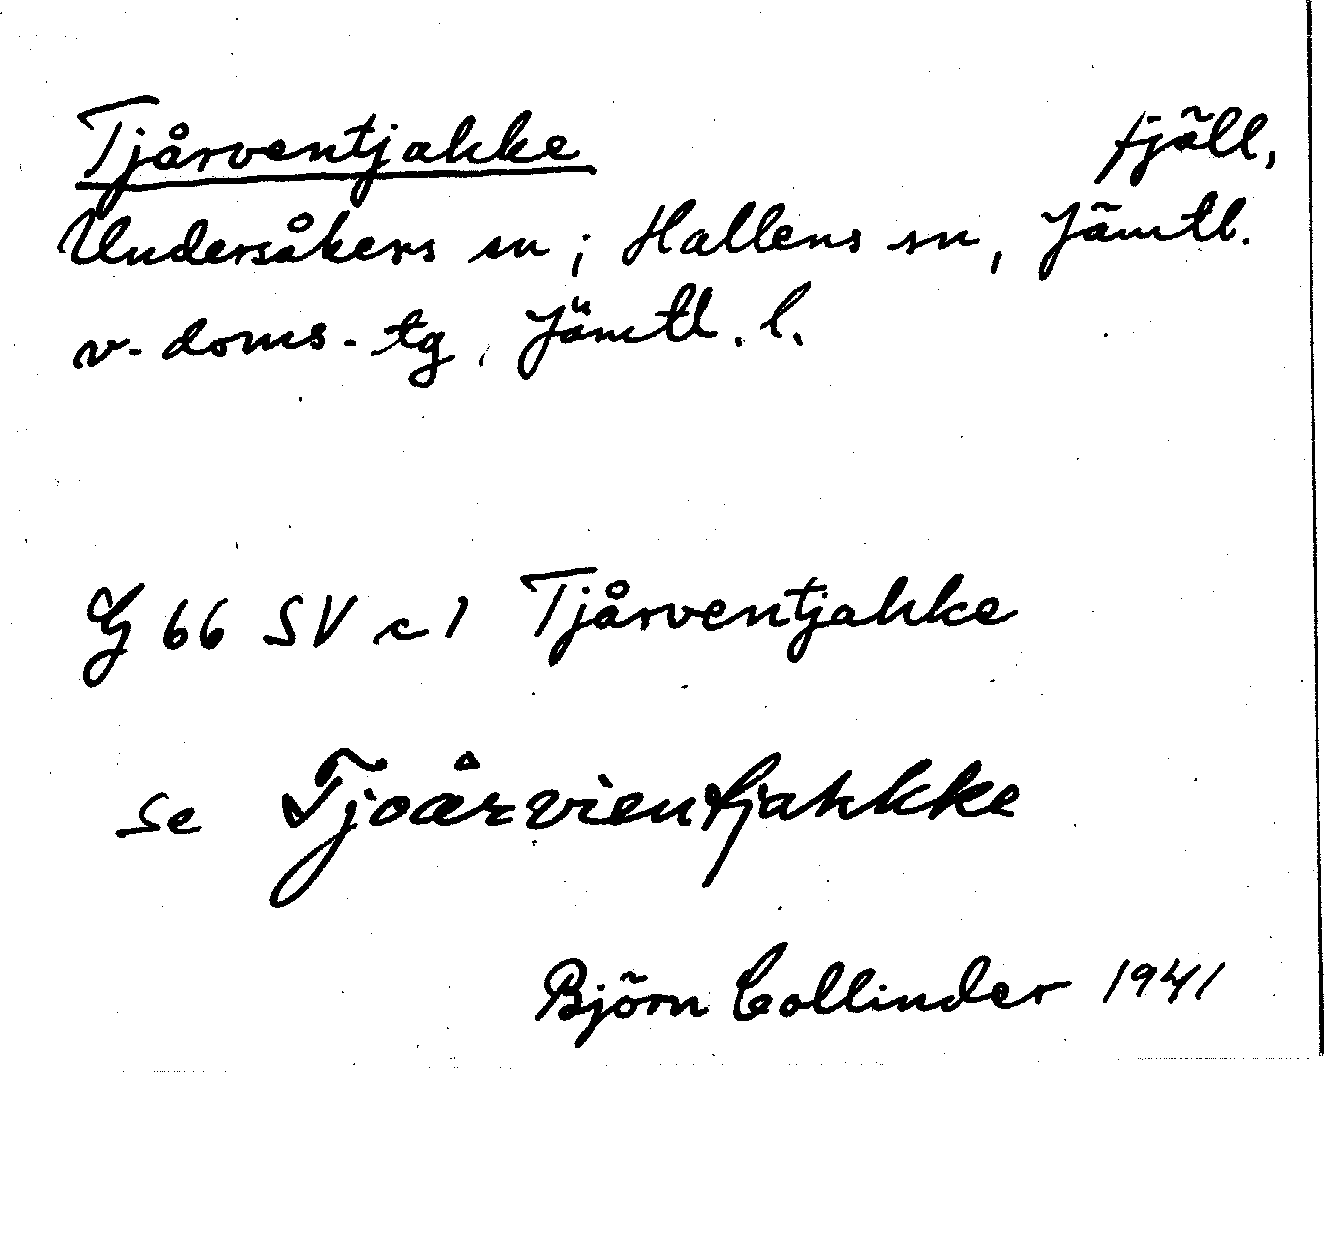 Tjårventjakke fjäll,
Undersåkers sn; Hallens sn, Jämtl.
v. doms. tg, Jämtl. l.
G 66 SV c 1 Tjårventjahke
se Tjoårvientjahkke
Björn Collinder 1941